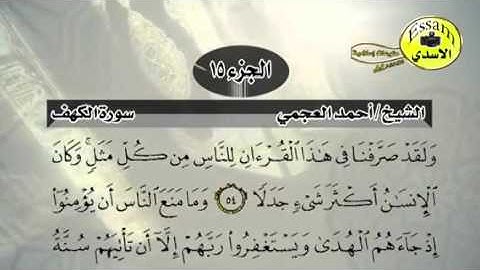 Essam
الاسدي
الجزء ١٥
الشيخ / أحمد العجمي
سورة الكهف
وَلَقَدْ صَرَّفْنَا فِى هَٰذَا ٱلْقُرْءَانِ لِلنَّاسِ مِن كُلِّ مَثَلٍۢ ۚ وَكَانَ
ٱلْإِنسَٰنُ أَكْثَرَ شَىْءٍۢ جَدَلًۭا ٥٤ وَمَا مَنَعَ ٱلنَّاسَ أَن يُؤْمِنُوٓا۟
إِذْ جَآءَهُمُ ٱلْهُدَىٰ وَيَسْتَغْفِرُوا۟ رَبَّهُمْ إِلَّآ أَن تَأْتِيَهُمْ سُنَّةُ